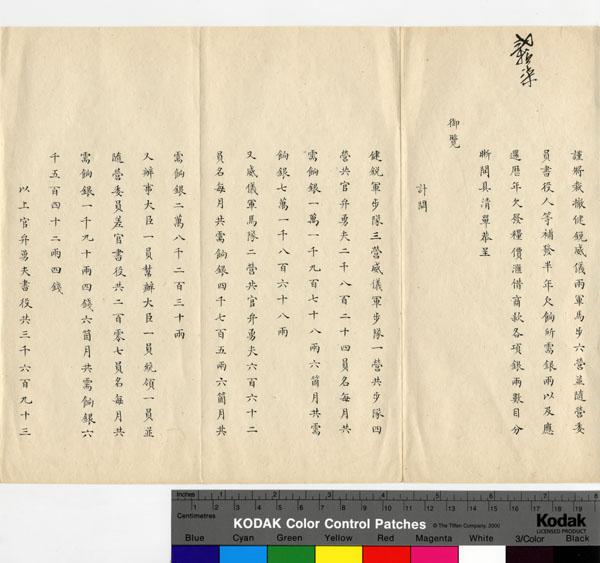 謹將裁撤健銳威儀兩軍馬步六營並隨營委
員書役人等補發半年欠餉所需銀兩以及應
還歷年欠發糧價滙借商款各項銀兩數目分
晰開具清單恭呈
御覽
計開
健銳軍步隊三營威儀軍步隊一營共步隊四
營共官弁勇夫二千八百二十四員名每月共
需餉銀一萬一千九百七十八兩六箇月共需
餉銀七萬一千八百六十八兩
又威儀軍馬隊二營共官弁勇夫六百六十二
員名每月共需餉銀四千七百五兩六箇月共
需餉銀二萬八千二百三十兩
又辦事大臣一員幫辦大臣一員統領一員並
隨營委員差官書役共二百零七員名每月共
需餉銀一千九十兩四錢六箇月共需餉銀六
千五百四十二兩四錢
以上官弁勇夫書役共三千六百九十三
Inches 1 2 3 4 5 6 7 8
Centimetres 1 2 3 4 5 6 7 8 9 10 11 12 13 14 15 16 17 18 19
KODAK Color Control Patches © The Tiffen Company, 2000
Kodak
LICENSED PRODUCT
Blue Cyan Green Yellow Red Magenta White 3/Color Black